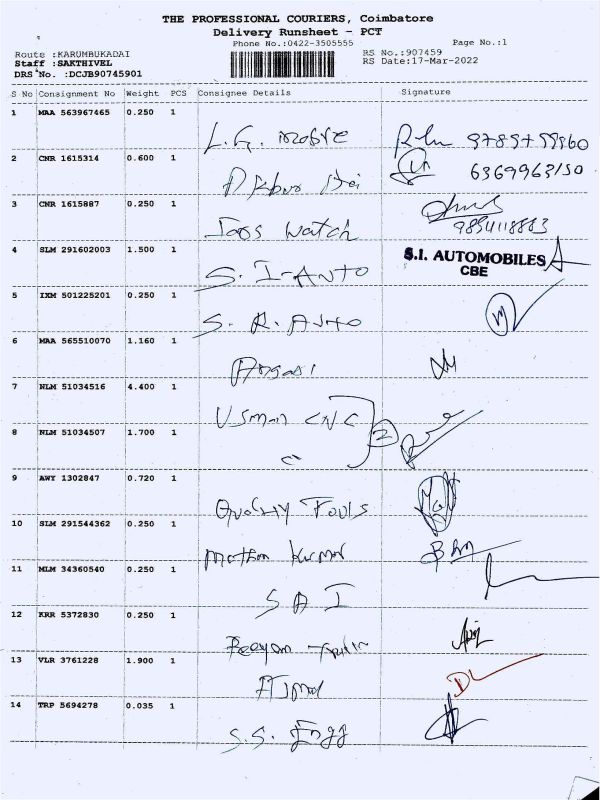 THE PROFESSIONAL COURIERS, Coimbatore
Delivery Runsheet - PCT
Phone No.:0422-3505555
Page No.:1
Route :KARUMBUKADAI
RS No.:907459
Staff :SAKTHIVEL
RS Date:17-Mar-2022
DRS No. :DCJB90745901
S No Consignment No Weight PCS Consignee Details Signature
1 MAA 563967465 0.250 1
L.G.
2 CNR 1615314 0.600 1
6369963150
3 CNR 1615887 0.250 1
Watch
4 SLM 291602003 1.500 1
S.I. AUTOMOBILES
CBE
S. I-ANTO
5 IXM 501225201 0.250 1
S. R. AUTO
6 MAA 565510070 1.160 1
7 NLM 51034516 4.400 1
Usman CNC
2
8 NLM 51034507 1.700 1
9 AWY 1302847 0.720 1
Quality Tools
10 SLM 291544362 0.250 1
Kumar
11 MLM 34360540 0.250 1
S A I
12 KRR 5372830 0.250 1
13 VLR 3761228 1.900 1
Ajmal
14 TRP 5694278 0.035 1
S.S. Engg